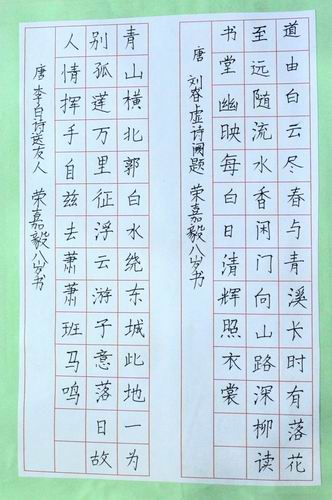 道由白云尽春与青溪长时有落花
至远随流水香闲门向山路深柳读
书堂幽映每白日清辉照衣裳
唐 刘眘虚诗阙题 荣嘉毅八岁书
青山横北郭白水绕东城此地一为
别孤莲万里征浮云游子意落日故
人情挥手自兹去萧萧班马鸣
唐 李白诗送友人 荣嘉毅八岁书